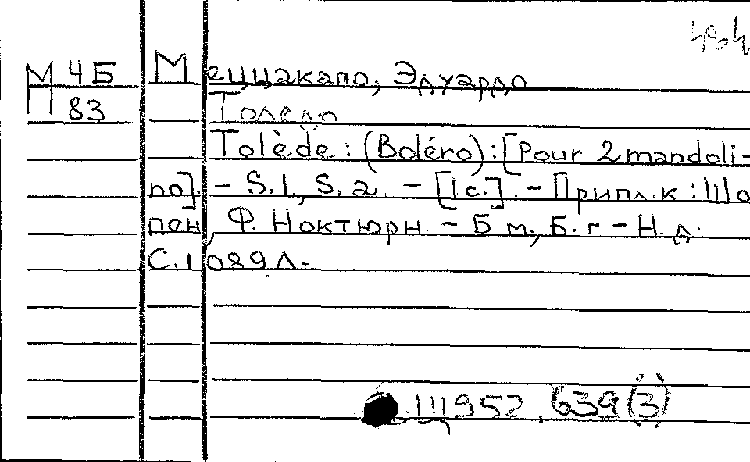 М 4Б Меццакапо, Эдуардо
П 83 Толедо
Tolède : (Boléro) : [Pour 2 mandoli-
no]. – S. l., S. a. – [1 с.]. – Прил. к : Шо
пен, Ф. Ноктюрн. – Б м., Б. г – Н. д.
С. 1089 Л.
Щ952 639(3)